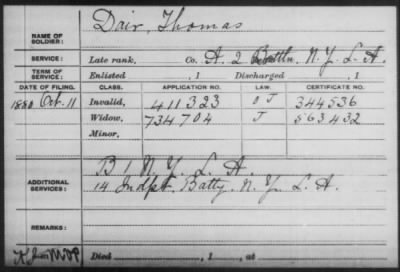 NAME OF SOLDIER: Dair, Thomas
SERVICE: Late rank, Co. A. 2 Battln. N. Y. L. A.
TERM OF SERVICE: Enlisted , 1 Discharged , 1
DATE OF FILING. CLASS. APPLICATION NO. LAW. CERTIFICATE NO.
1880 Oct. 11 Invalid, 411323 O J 344536
Widow, 734704 J 563432
Minor,
B 1 N. Y. L. A.
ADDITIONAL SERVICES: 14 Indpt. Batty. N. Y. L. A.
REMARKS:
Died , 1 , at